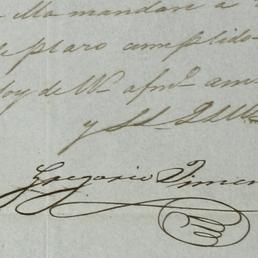 mandare a
de plazo cumplido
soy de Vd afmo am
y S. S.
Gregorio Jimen